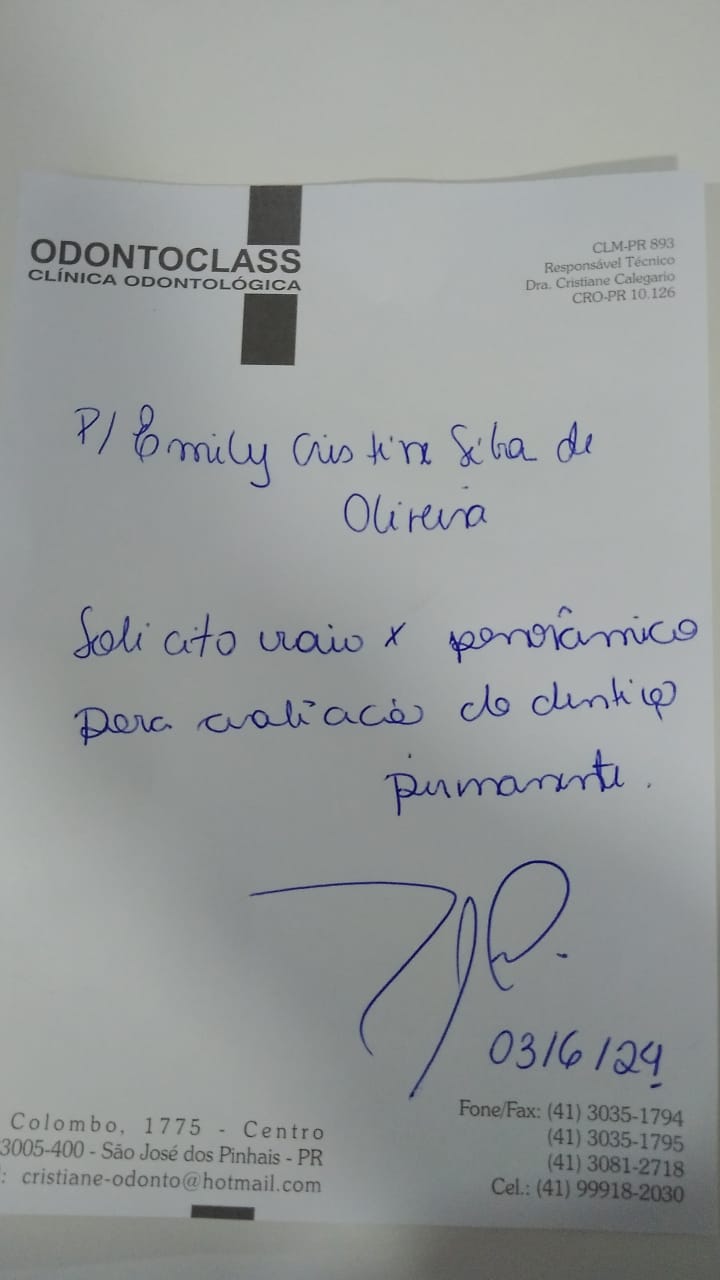 ODONTOCLASS
CLÍNICA ODONTOLÓGICA
CLM-PR 893
Responsável Técnico
Dra. Cristiane Calegario
CRO-PR 10.126
P/ Emily Cristine Silva de
Oliveira
Solicito raio x panorâmico
para avaliação da dentição
permanente.
03/6/24
Colombo, 1775 - Centro
3005-400 - São José dos Pinhais - PR
: cristiane-odonto@hotmail.com
Fone/Fax: (41) 3035-1794
(41) 3035-1795
(41) 3081-2718
Cel.: (41) 99918-2030